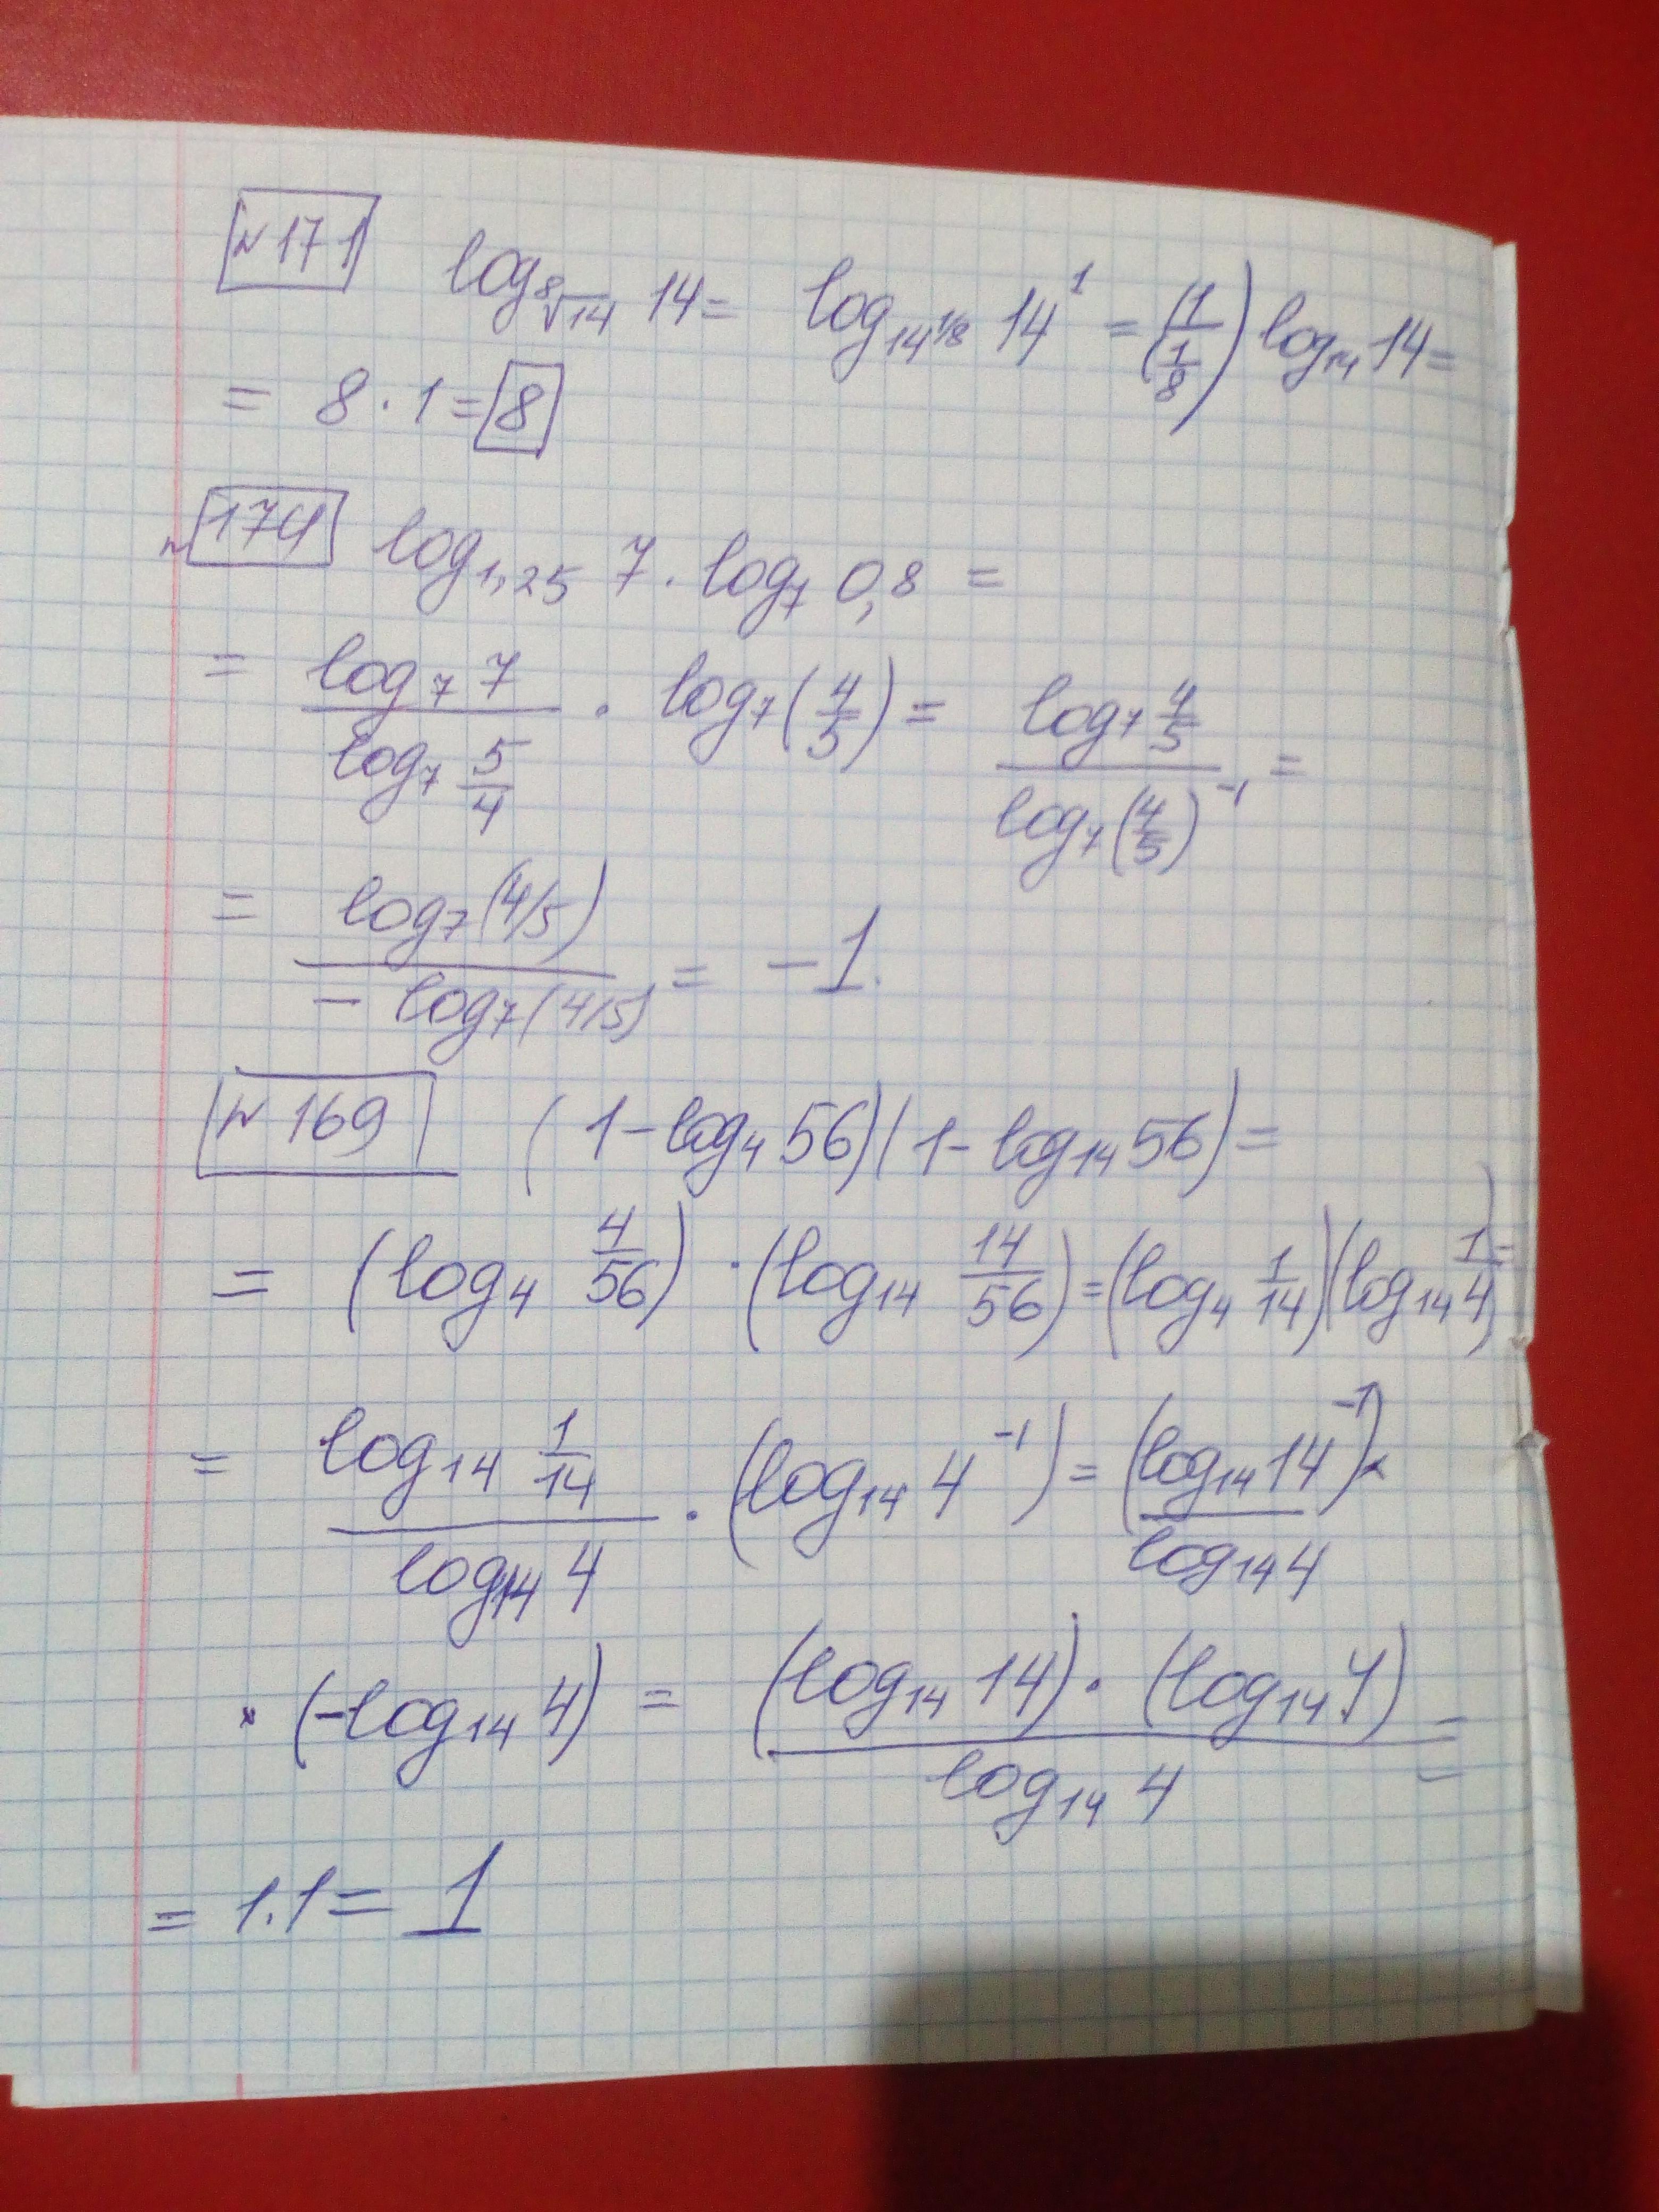 №171 log_{⁸√14} 14 = log_{14^{1/8}} 14^1 = (1/(1/8)) log_{14} 14 =
= 8 · 1 = 8
№174 log_{1,25} 7 · log_7 0,8 =
= (log_7 7)/(log_7 5/4) · log_7 (4/5) = (log_7 4/5)/(log_7 (4/5)^{-1}) =
= (log_7 (4/5))/(- log_7 (4/5)) = -1.
№169 (1 - log_4 56)(1 - log_{14} 56) =
= (log_4 4/56) · (log_{14} 14/56) = (log_4 1/14)(log_{14} 1/4) =
= (log_{14} 1/14)/(log_{14} 4) · (log_{14} 4^{-1}) = (log_{14} 14^{-1})/(log_{14} 4) ×
× (-log_{14} 4) = ((log_{14} 14) · (log_{14} 4))/(log_{14} 4) =
= 1 . 1 = 1